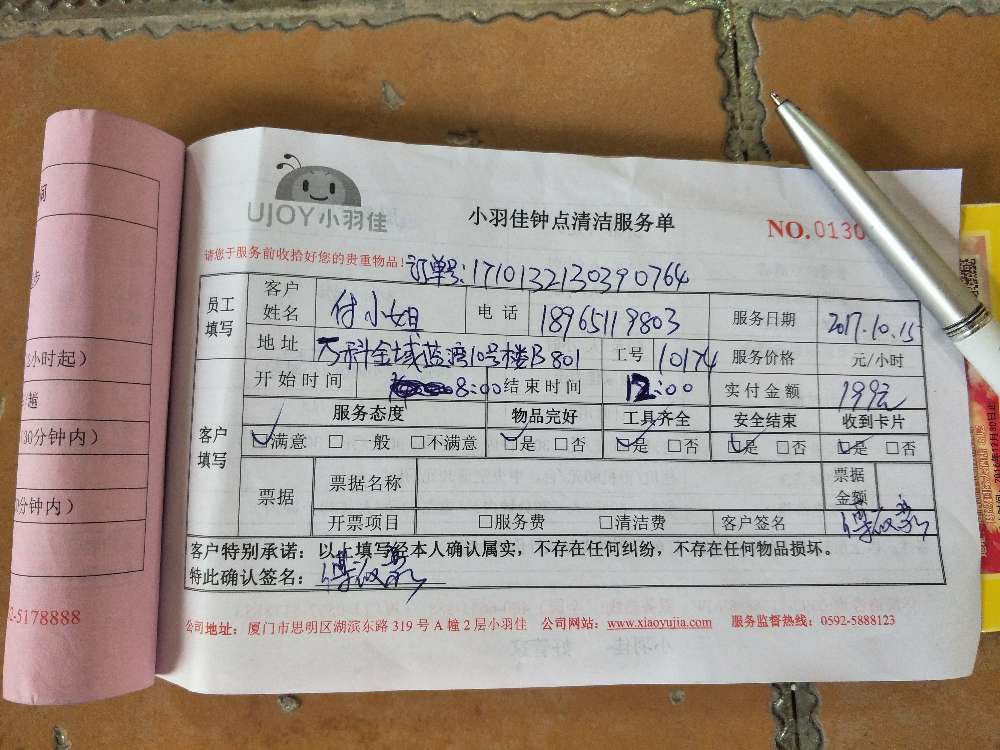 UJOY小羽佳
小羽佳钟点清洁服务单
NO.0130
请您于服务前收拾好您的贵重物品!
订单号:17101322130390764
员工填写 客户姓名 付小姐 电话 18965119803 服务日期 2017.10.15
地址 万科金域蓝湾10号楼B801 工号 10174 服务价格 元/小时
开始时间 8:00 结束时间 12:00 实付金额 199元
客户填写 服务态度 物品完好 工具齐全 安全结束 收到卡片
☑满意 □一般 □不满意 ☑是 □否 ☑是 □否 ☑是 □否 ☑是 □否
票据 票据名称 票据金额
开票项目 □服务费 □清洁费 客户签名
客户特别承诺:以上填写经本人确认属实,不存在任何纠纷,不存在任何物品损坏。
特此确认签名:
公司地址:厦门市思明区湖滨东路 319 号 A 幢 2 层小羽佳 公司网站:www.xiaoyujia.com 服务监督热线:0592-5888123
小时起)
趟
30分钟内)
0分钟内)
2-5178888